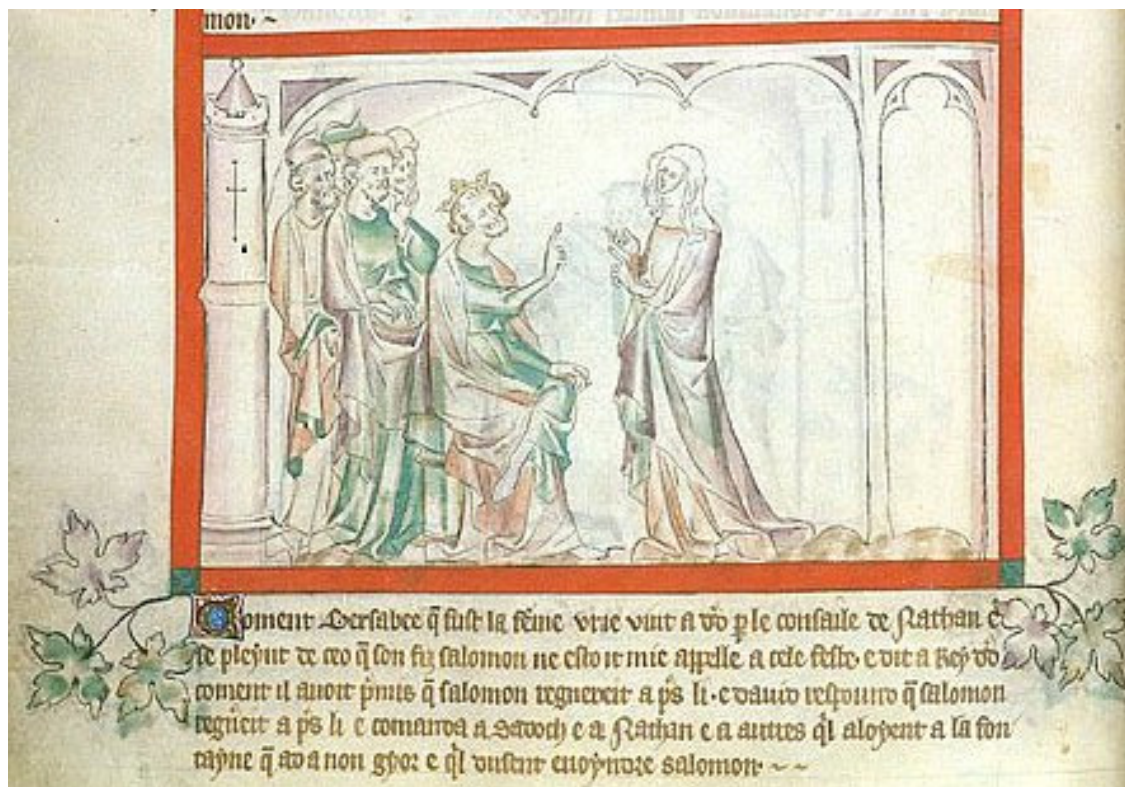 mon·~
Coment Bersabee q̄ fust la fēme vrie vint a d'd p le consaile de Nathan e
se pleynt de ceo q̄ son fiz salomon ne estoit mie apelle a cele feste· e dit a Rey d'd
coment il auoit p'mis q̄ salomon regnereit a p's li· e dauid respount q̄ salomon
regn'eit a p's li e comanda a Sadoch e a Nathan e a autres q'l aloyent a la fon
tayne q̄ ad a non gyor e q'l vusent enoyndre salomon·~~